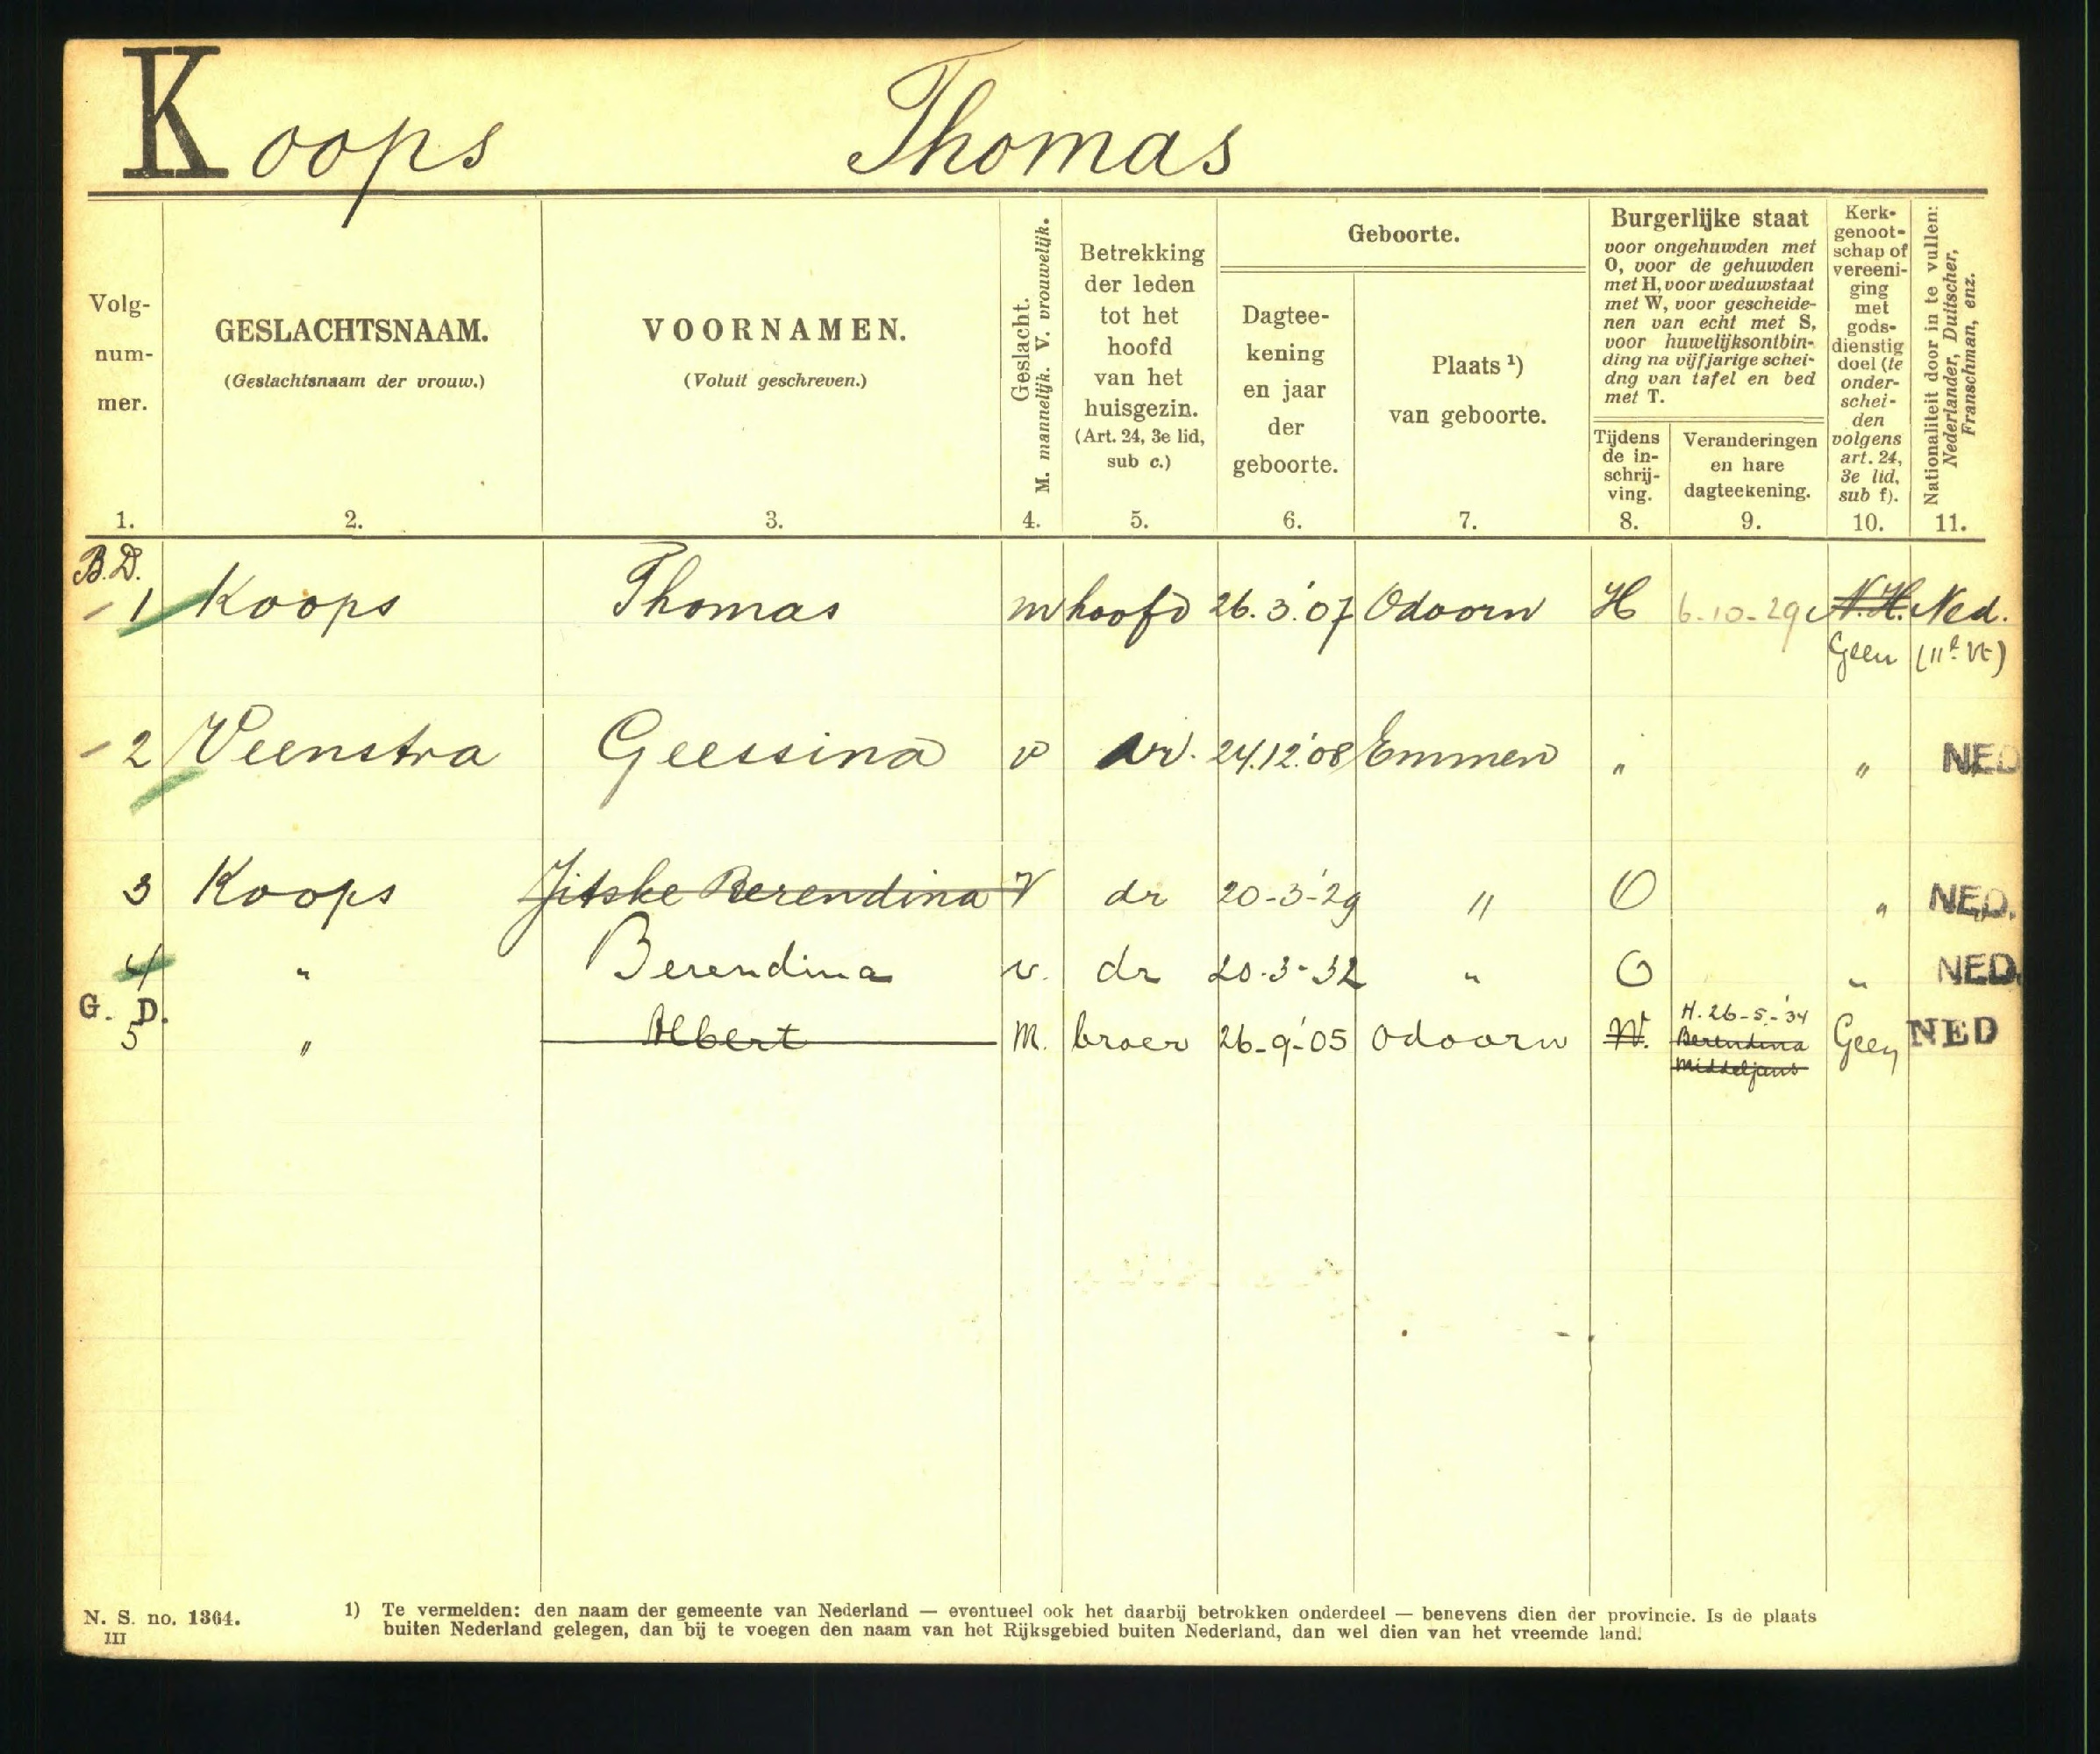 Koops Thomas
Volg-
num-
mer.
1.
GESLACHTSNAAM.
(Geslachtsnaam der vrouw.)
2.
VOORNAMEN.
(Voluit geschreven.)
3.
Geslacht.
M. mannelijk. V. vrouwelijk.
4.
Betrekking
der leden
tot het
hoofd
van het
huisgezin.
(Art. 24, 3e lid,
sub c.)
5.
Geboorte.
Dagtee-
kening
en jaar
der
geboorte.
6.
Plaats ¹)
van geboorte.
7.
Burgerlijke staat
voor ongehuwden met
O, voor de gehuwden
met H, voor weduwstaat
met W, voor gescheide-
nen van echt met S,
voor huwelijksontbin-
ding na vijfjarige schei-
dng van tafel en bed
met T.
Tijdens
de in-
schrij-
ving.
8.
Veranderingen
en hare
dagteekening.
9.
Kerk-
genoot-
schap of
vereeni-
ging
met
gods-
dienstig
doel (te
onder-
schei-
den
volgens
art. 24,
3e lid,
sub f).
10.
Nationaliteit door in te vullen:
Nederlander, Duitscher,
Franschman, enz.
11.
B.D.
1 Koops Thomas m hoofd 26.3.'07 Odoorn H 6-10-29 N.H. Ned.
Geen
2 Veenstra Geessina v vr. 24.12.'08 Emmen " " NED
3 Koops Jitske Berendina V dr 20-3-'29 " O " NED.
4 " Berendina v. dr 20-3-32 " O " NED.
G. D.
5 " Albert M. broer 26-9-'05 Odoorn W. H. 26-5-'34 Geen NED
Berendina
Middeljans
N. S. no. 1364.
III
1) Te vermelden: den naam der gemeente van Nederland — eventueel ook het daarbij betrokken onderdeel — benevens dien der provincie. Is de plaats
buiten Nederland gelegen, dan bij te voegen den naam van het Rijksgebied buiten Nederland, dan wel dien van het vreemde land.